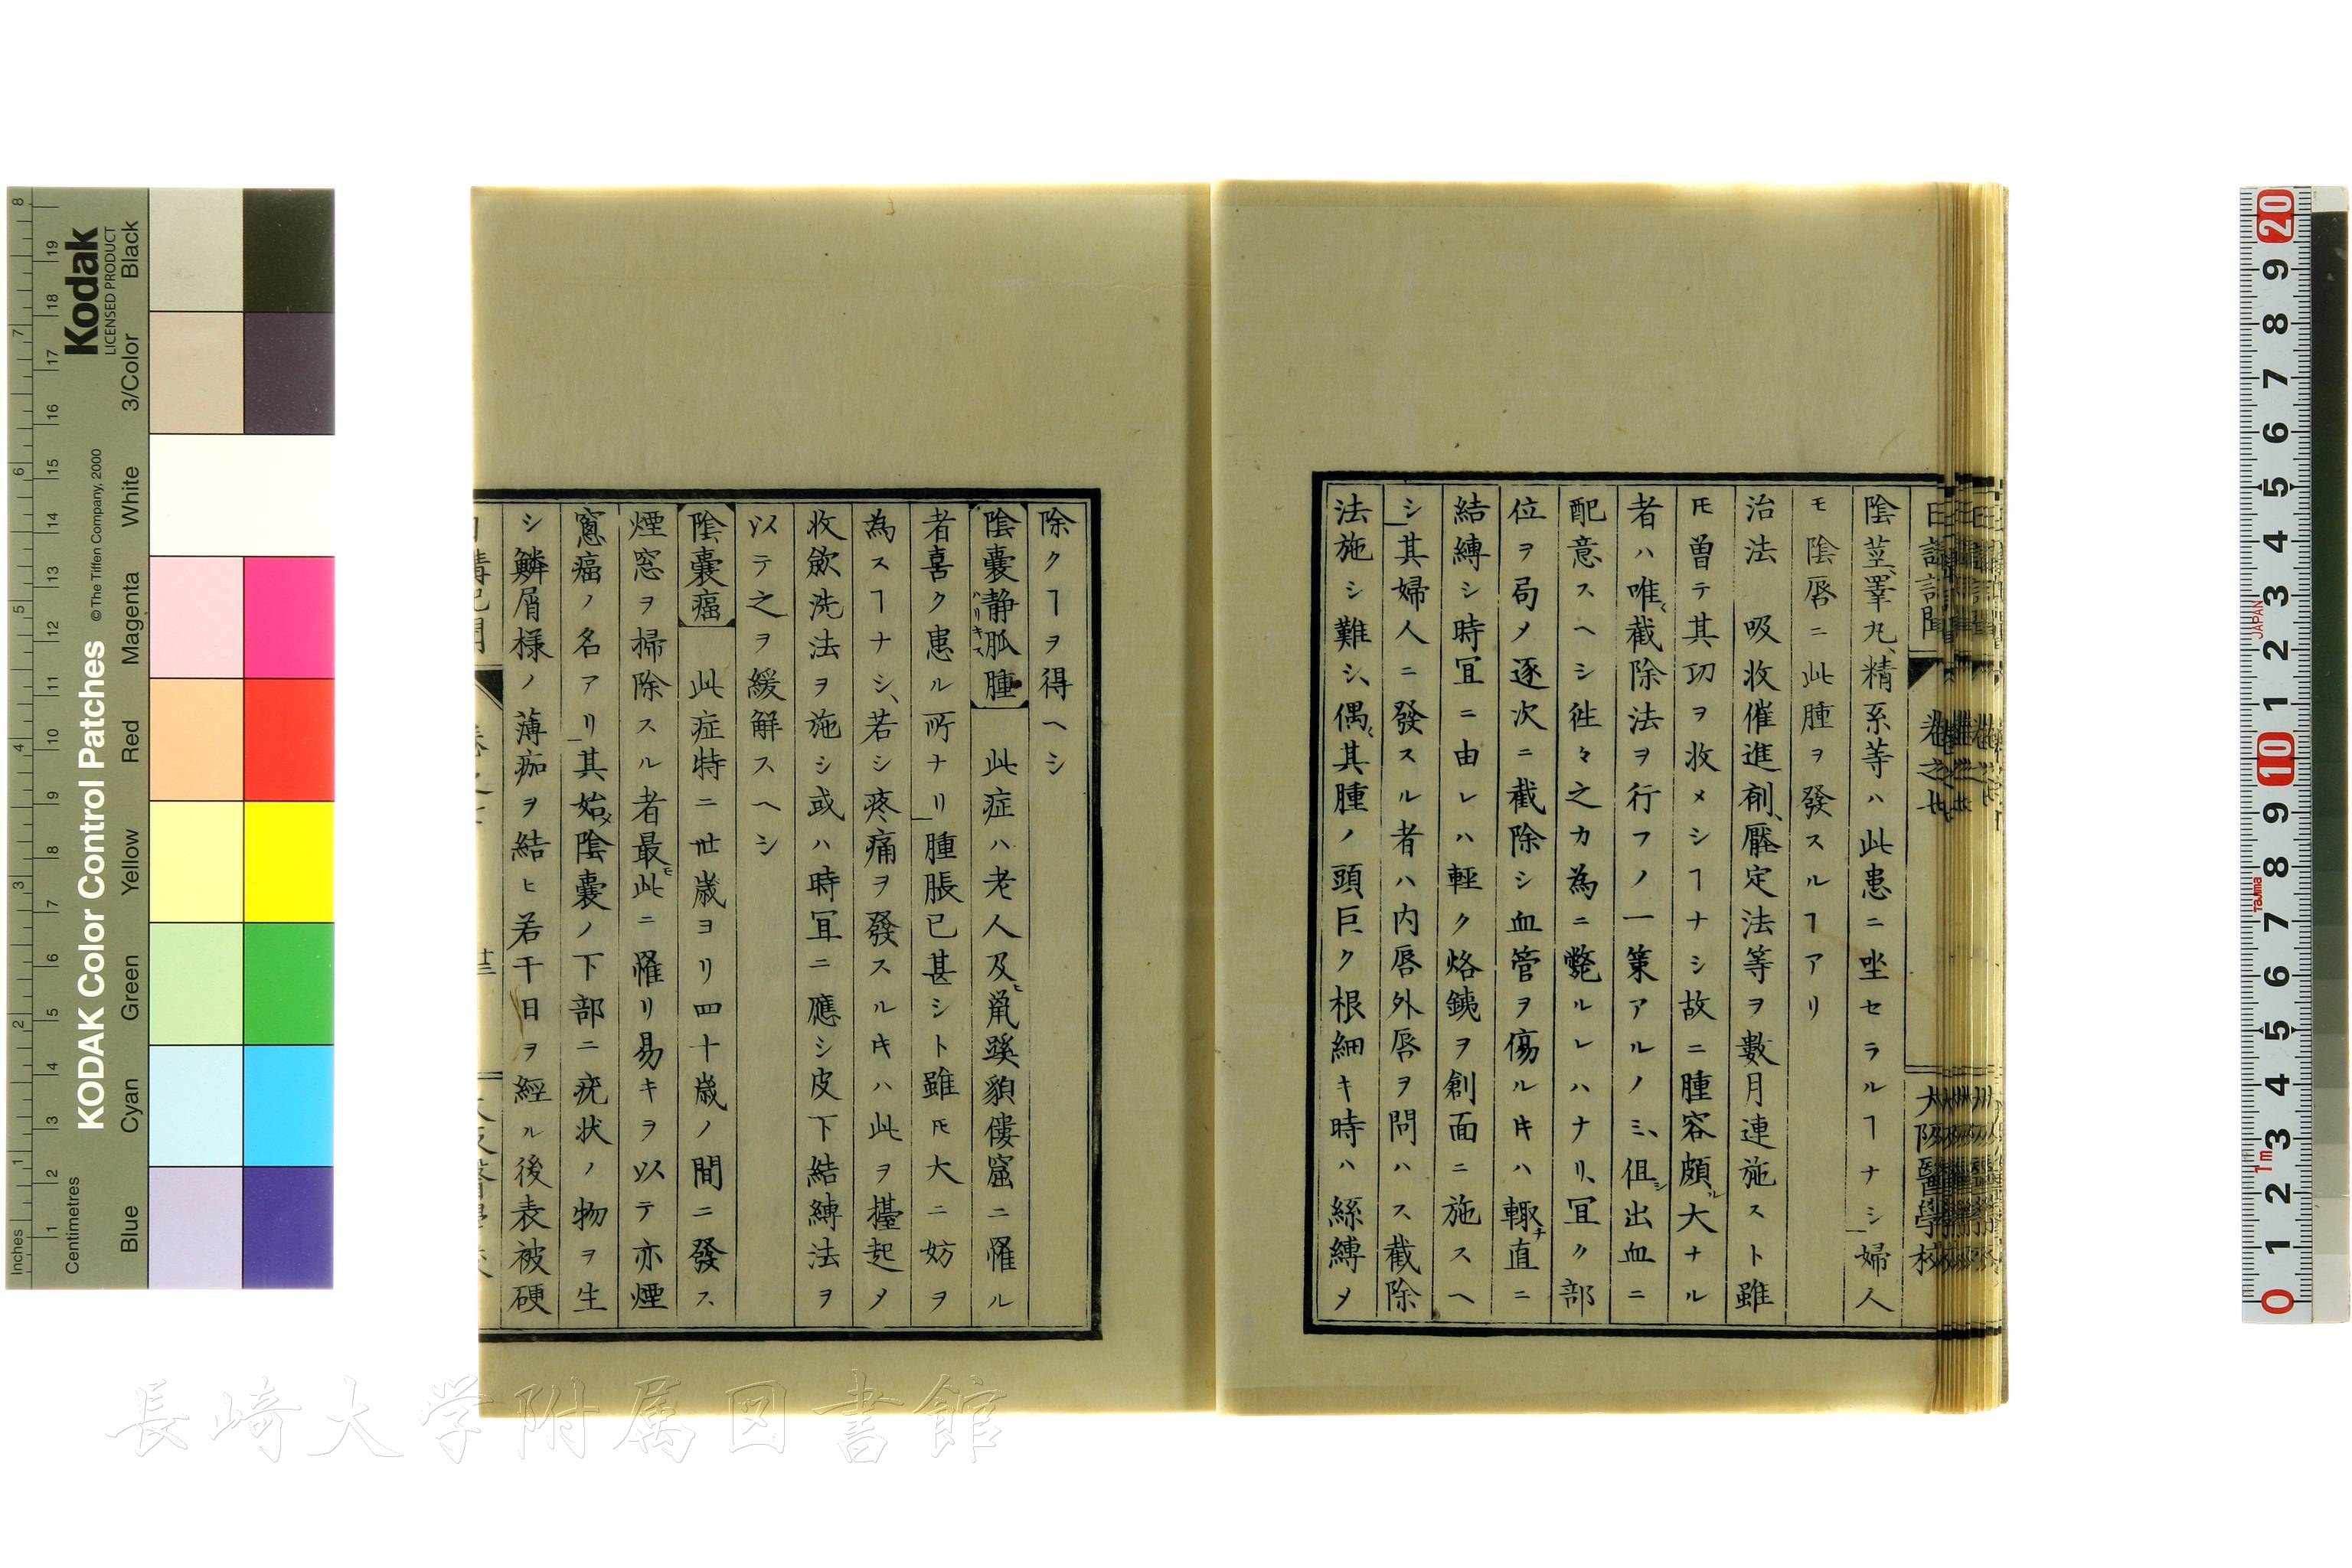 陰莖、睪丸、精系等ハ此患ニ坐セラルヿナシ婦人
モ陰唇ニ此腫ヲ發スルヿアリ
治法　吸收催進劑、壓定法等ヲ數月連施スト雖
𪜈曽テ其功ヲ收メシヿナシ故ニ腫容頗ル大ナル
者ハ唯〻截除法ヲ行フノ一策アルノミ、但シ出血ニ
配意スヘシ徃々之カ為ニ斃ルレハナリ、冝ク部
位ヲ局メ逐次ニ截除シ血管ヲ傷ルキハ輙チ直ニ
結縛シ時冝ニ由レハ輕ク烙銕ヲ創面ニ施スヘ
シ其婦人ニ發スル者ハ内唇外唇ヲ問ハス截除
法施シ難シ、偶〻其腫ノ頭巨ク根細キ時ハ絲縛メ
除クヿヲ得ヘシ
陰嚢静脈腫　此症ハ老人及ヒ鼠蹊貌僂窟ニ罹ル
ハリキス
者喜ク患ル所ナリ腫脹已甚シト雖𪜈大ニ妨ヲ
為スヿナシ、若シ疼痛ヲ發スルキハ此ヲ擡起メ
收斂洗法ヲ施シ或ハ時冝ニ應シ皮下結縛法ヲ
以テ之ヲ緩解スヘシ
陰嚢癌　此症特ニ丗歳ヨリ四十歳ノ間ニ發ス
煙窓ヲ掃除スル者最モ此ニ罹リ易キヲ以テ亦煙
窻癌ノ名アリ其始メ陰嚢ノ下部ニ疣状ノ物ヲ生
シ鱗屑様ノ薄痂ヲ結ヒ若干日ヲ經ル後表被硬
日講記聞　卷之廿　大阪醫學校
長崎大学附属図書館
KODAK Color Control Patches
© The Tiffen Company, 2000
Kodak
LICENSED PRODUCT
Inches
Centimetres
Blue Cyan Green Yellow Red Magenta White 3/Color Black
1 2 3 4 5 6 7 8
1 2 3 4 5 6 7 8 9 10 11 12 13 14 15 16 17 18 19
20 9 8 7 6 5 4 3 2 1 10 9 8 7 6 5 4 3 2 1 0
JAPAN
Tajima
1m